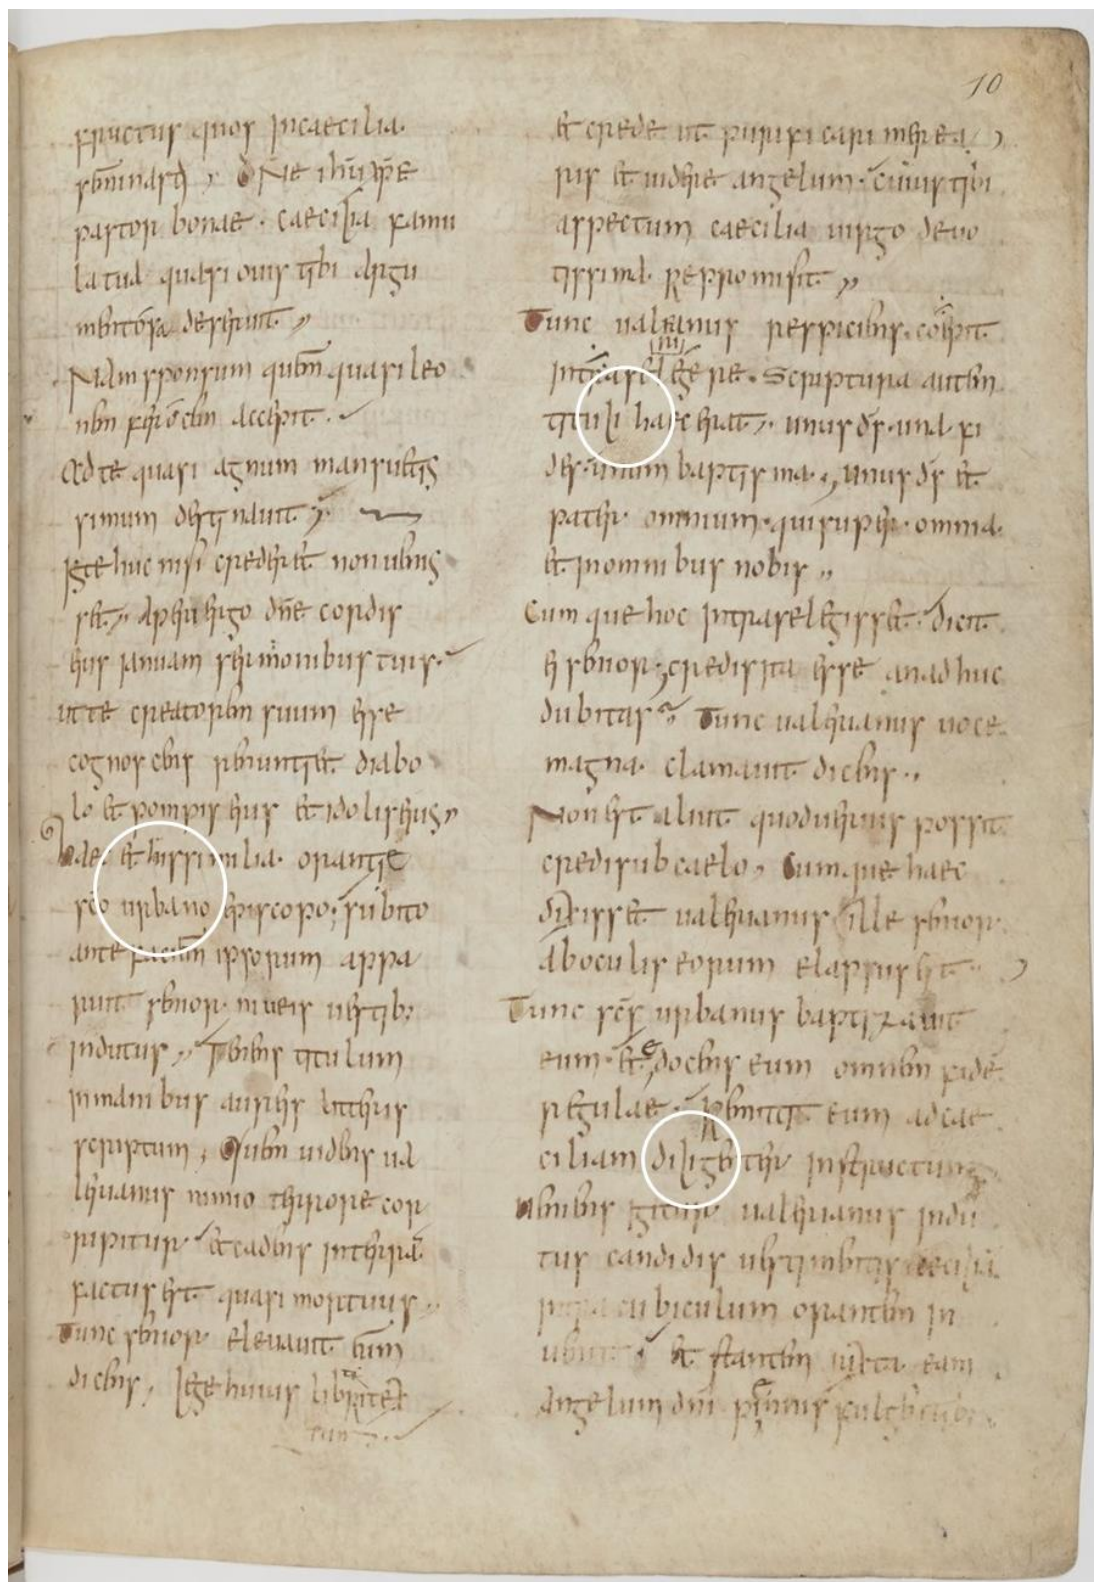 10
fructus quos in caecilia.
seminasti, dñe ihu xpe
pastor bonae. caecilia famu
la tua quasi ovis tibi argu
mentosa deseruit
Nam sponsum quem quasi leo
nem ferocem accepit.
ad te quasi agnum mansuetis
simum destinavit
iste huc nisi crederet non venis
set, aperi ergo dñe cordis
eius ianuam sermonibus tuis.
ut te creatorem suum esse
cognoscens renuntiet diabo
lo et pompis eius et idolis eius
et his similia orante
sco urbano episcopo, subito
ante faciem ipsorum appa
ruit senior niveis vestib;
indutus, tenens titulum
in manibus aureis litteris
scriptum, quem videns va
lerianus nimio terrore cor
ripitur et cadens in terrā
factus est quasi mortuus
Tunc senior elevavit eum
dicens, lege huius libri
tum
et crede ut purificari merea
ris et videre angelum. cuius tibi
aspectum caecilia virgo devo
tissima. repromisit
Tunc valerianus respiciens. coepit
intra se legere. Scriptura autem
tituli haec erat, unus ds. una fi
des. unum baptisma, unus ds et
pater omnium. qui super omnia.
et in omnibus nobis
Cumque hoc intra se legisset. dicit
ei senior, credis ita esse an adhuc
dubitas Tunc valerianus voce
magna clamavit dicens
Non est aliut quod verius possit
credi sub caelo, Cumque haec
dixisset valerianus ille senior
ab oculis eorum elapsus est
Tunc scs urbanus baptizavit
eum. et docens eum omnem fidē
regulae. remittit eum ad cae
ciliam diligenter instructum
veniens igitur valerianus indu
tus candidis vestimentis
intra cubiculum orantem in
venit et stantem iuxta eam
angelum dñi